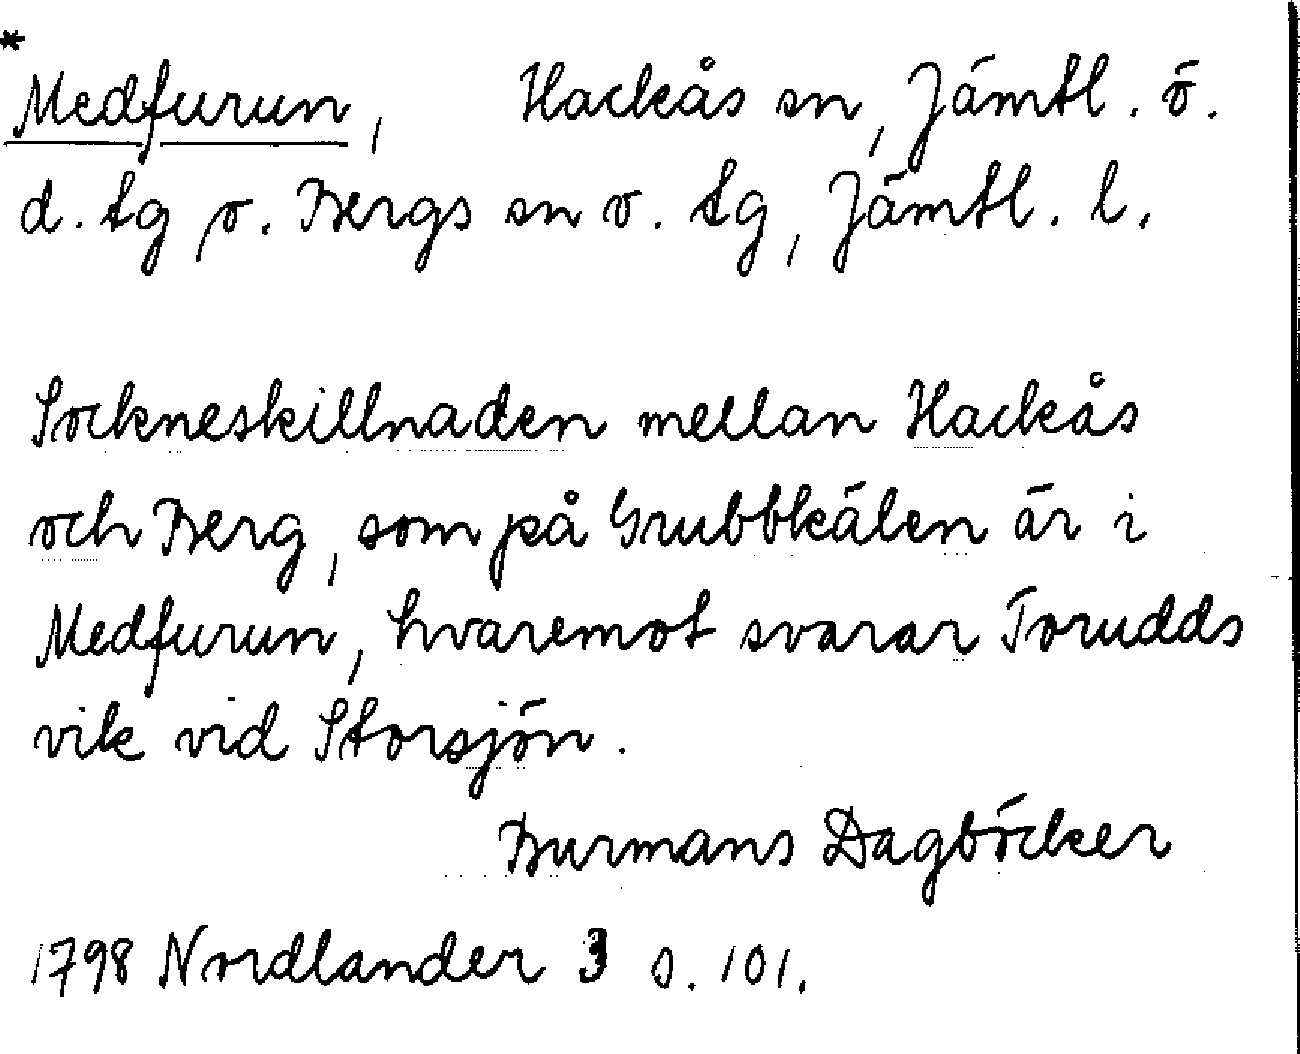 *
Medfurun, Hackås sn, Jämtl. ö.
d. tg o. Bergs sn v. tg, Jämtl. l.
Sockneskillnaden mellan Hackås
och Berg, som på Grubbkälen är i
Medfurun, hvaremot svarar Torudds
vik vid Storsjön.
Burmans Dagböcker
1798 Nordlander 3 s. 101.